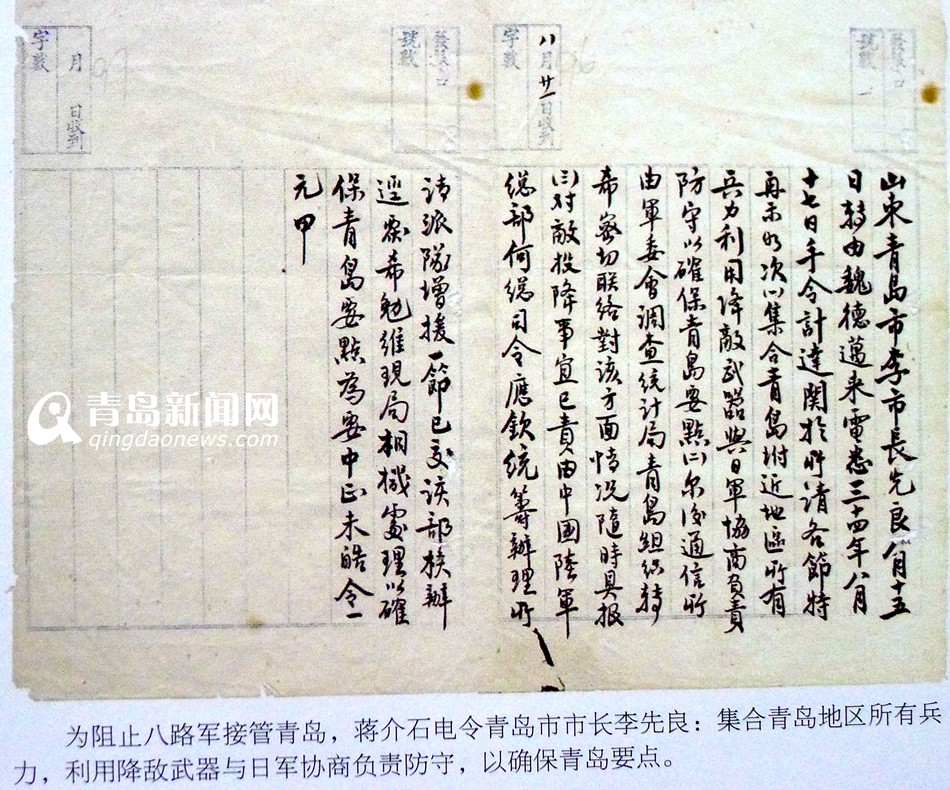 發報人
號數
八月廿一日收到
字數
發報人
號數
月 日收到
字數
山東青島市李市長先良八月十五
日轉由魏德邁来電悉三十四年八月
十七日手令計達關於所請各節特
再示如次(一)集合青島附近地區所有
兵力利用降敵武器與日軍協商負責
防守以確保青島要點(二)尔後通信所
由軍委會調查統計局青島組织轉
希密切联络對該方面情况隨時具报
(三)对敵投降事宜已責由中國陸軍
总部何总司令應欽統籌辦理所
請派隊增援一節已交該部核辦
逕處希勉維現局相機處理以確
保青島要點為要中正未皓令一
元甲
青岛新闻网
qingdaonews.com
为阻止八路军接管青岛，蒋介石电令青岛市市长李先良：集合青岛地区所有兵
力，利用降敌武器与日军协商负责防守，以确保青岛要点。